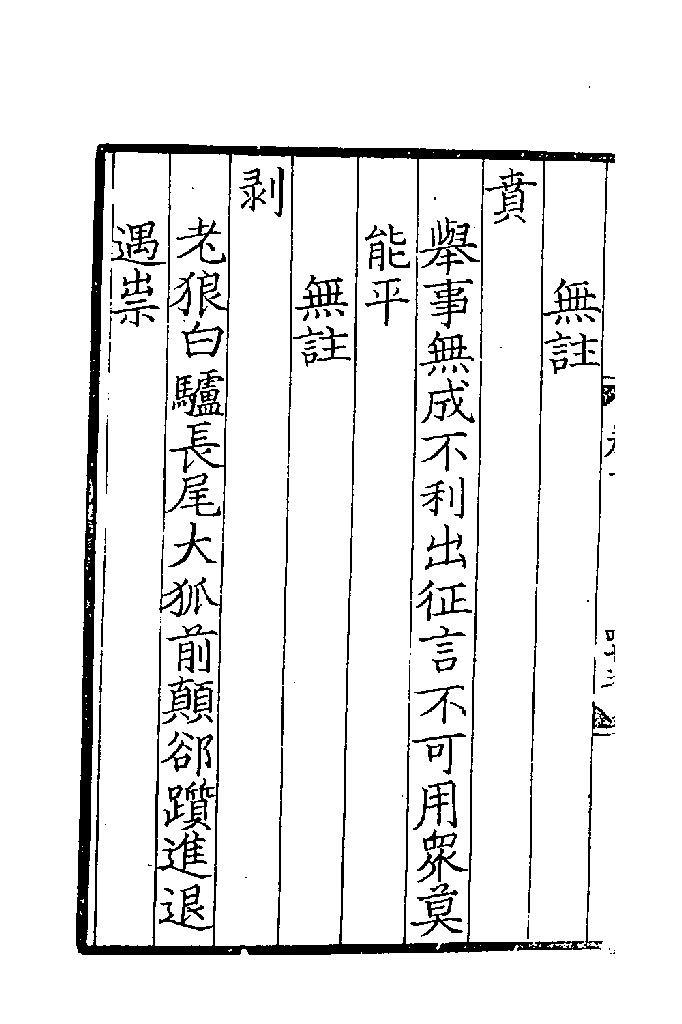 無註
賁
舉事無成不利出征言不可用衆莫
能平
無註
剥
老狼白驢長尾大狐前顛卻躓進退
遇祟